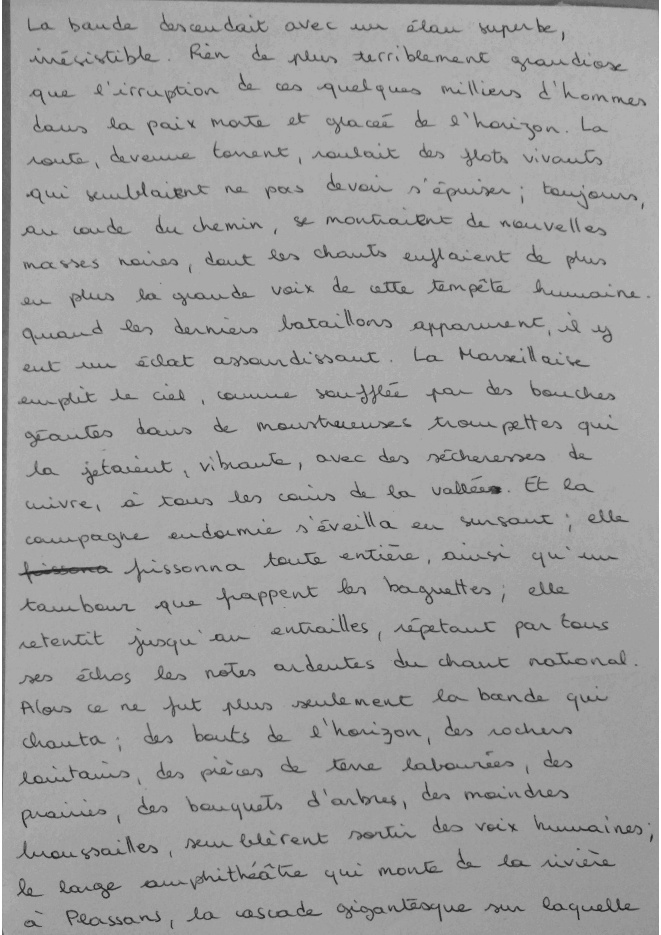 La bande descendait avec un élan superbe,
irrésistible. Rien de plus terriblement grandiose
que l'irruption de ces quelques milliers d'hommes
dans la paix morte et glacée de l'horizon. La
route, devenue torrent, roulait des flots vivants
qui semblaient ne pas devoir s'épuiser ; toujours,
au coude du chemin, se montraient de nouvelles
masses noires, dont les chants enflaient de plus
en plus la grande voix de cette tempête humaine.
Quand les derniers bataillons apparurent, il y
eut un éclat assourdissant. La Marseillaise
emplit le ciel, comme soufflée par des bouches
géantes dans de monstrueuses trompettes qui
la jetaient, vibrante, avec des sécheresses de
cuivre, à tous les coins de la vallée. Et la
campagne endormie s'éveilla en sursaut ; elle
frissonna toute entière, ainsi qu'un
tambour que frappent les baguettes ; elle
retentit jusqu'au entrailles, répétant par tous
ses échos les notes ardentes du chant national.
Alors ce ne fut plus seulement la bande qui
chanta ; des bouts de l'horizon, des rochers
lointains, des pièces de terre labourées, des
prairies, des bouquets d'arbres, des moindres
broussailles, semblèrent sortir des voix humaines ;
le large amphithéâtre qui monte de la rivière
à Plassans, la cascade gigantesque sur laquelle